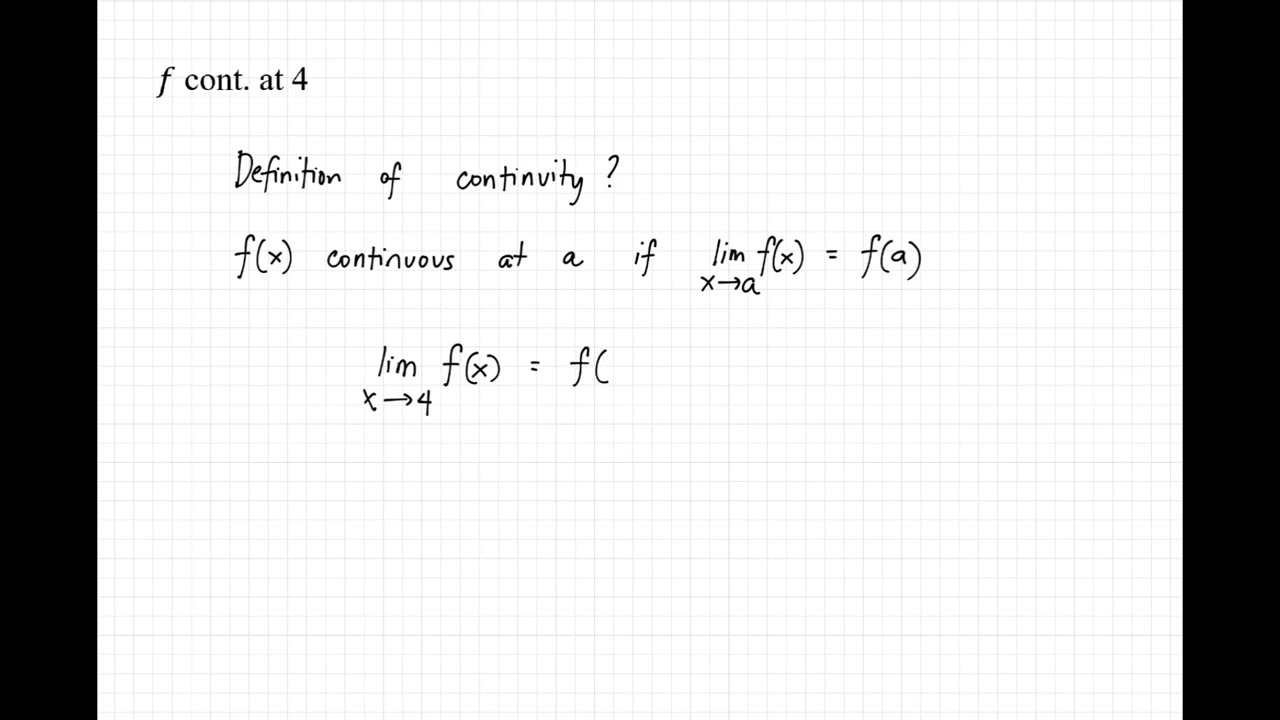 f cont. at 4
Definition of continuity ?
f(x) continuous at a if lim x→a f(x) = f(a)
lim x→4 f(x) = f(